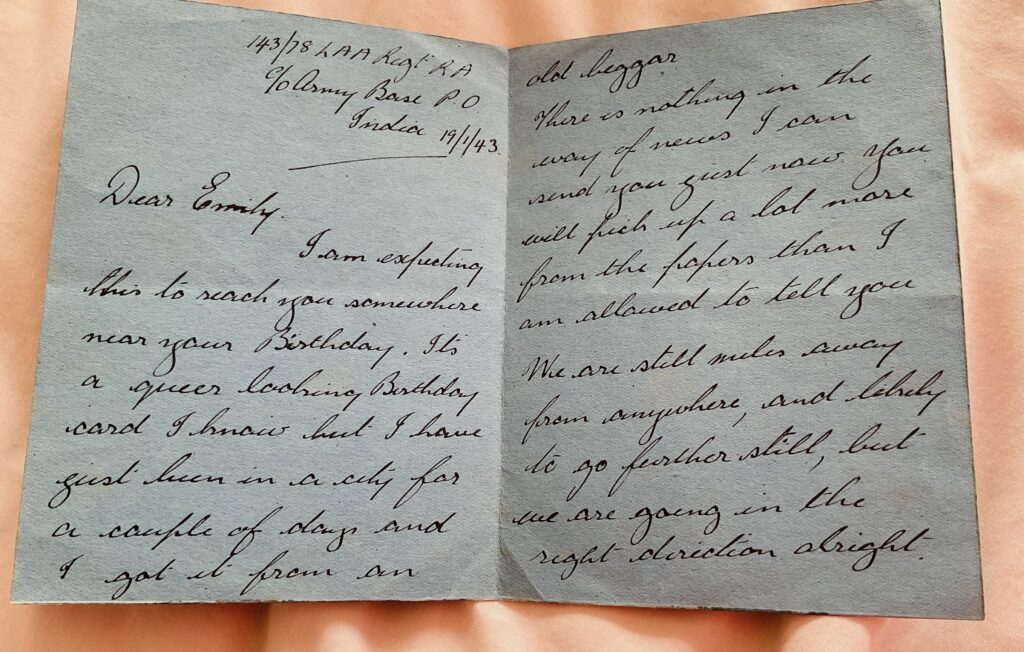 143/78 LAA Regt RA
c/o Army Base P O
India 19/1/43.
Dear Emily.
I am expecting
this to reach you somewhere
near your Birthday. Its
a queer looking Birthday
card I know but I have
just been in a city for
a couple of days and
I got it from an
old beggar
There is nothing in the
way of news I can
send you just now. You
will pick up a lot more
from the papers than I
am allowed to tell you
We are still miles away
from anywhere, and likely
to go further still, but
we are going in the
right direction alright.